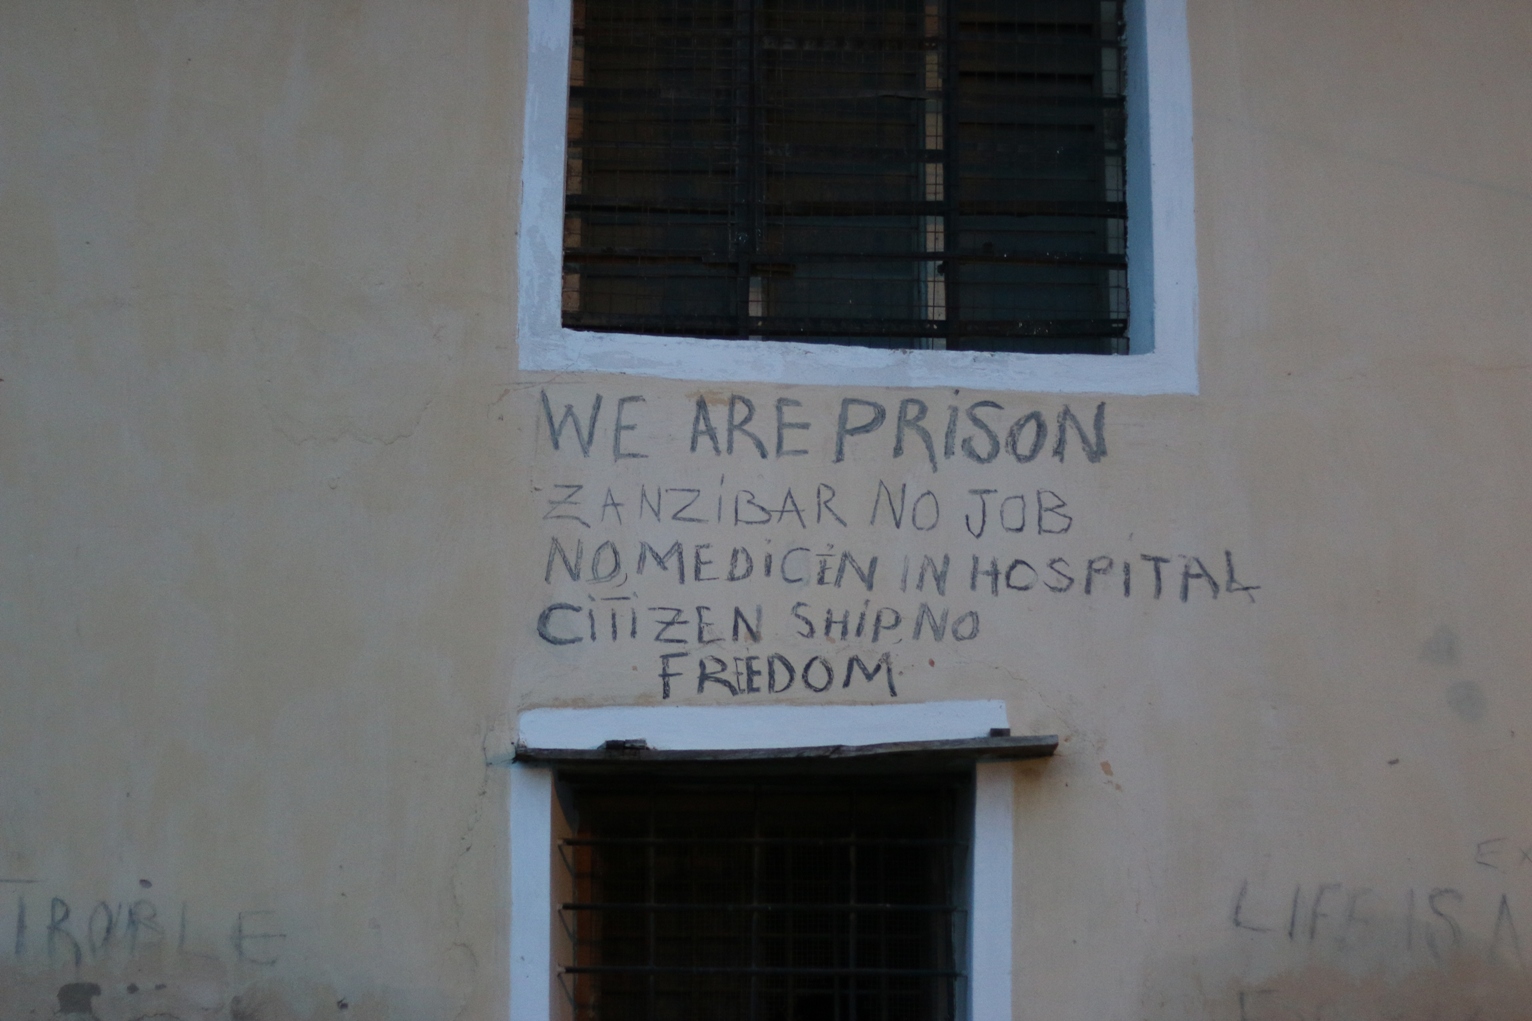 WE ARE PRISON
ZANZIBAR NO JOB
NO, MEDICIN IN HOSPITAL
CITIZEN SHIP, NO
FREEDOM
TROUBLE
LIFE IS A